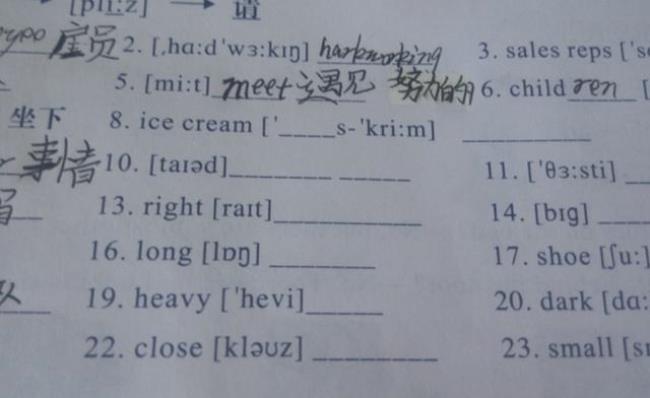 [pli:z] → 请
雇员 2. [ˌhɑ:d'wɜ:kɪŋ] harkworking 3. sales reps ['s
5. [mi:t] meet 遇见 努力的 6. child ren [
坐下 8. ice cream ['____s-'kri:m] ________
事情 10. [taɪəd]______ ______ 11. ['θɜ:sti] __
13. right [raɪt]________ 14. [bɪg] ____
16. long [lɒŋ] ________ 17. shoe [ʃu:]
19. heavy ['hevi]______ 20. dark [dɑ:
22. close [kləʊz] ________ 23. small [s